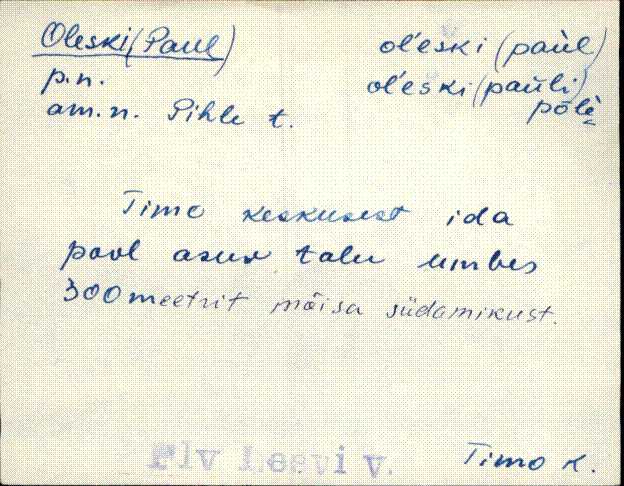 Oleski (Paul)
ol'eski (paùl)
p.n.
ol'eski (paùli)
põlè
am.n. Pihle t.
Timo keskusest ida
pool asuv talu umbes
300 meetrit mõisa südamikust.
Plv Leevi v.
Timo k.